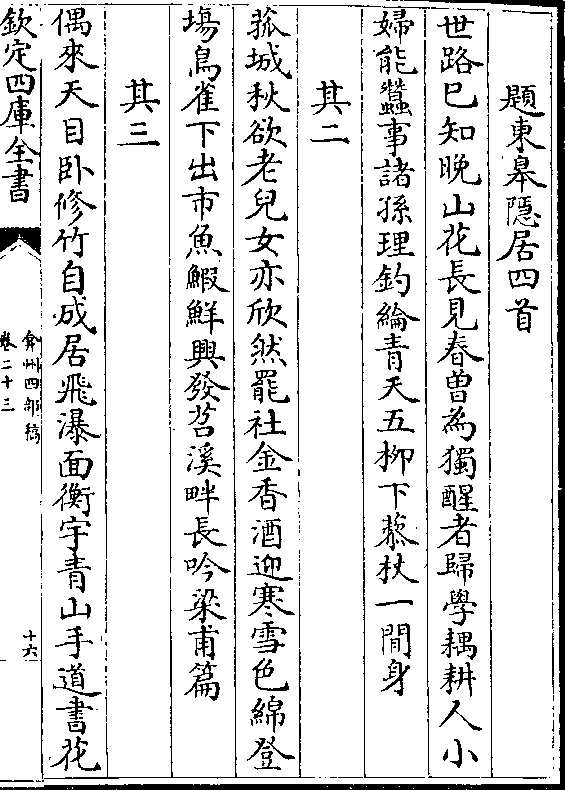 題東臯隱居四首
世路已知晚山花長見春曽為獨醒者歸學耦耕人小
婦能蠶事諸孫理釣綸青天五柳下藜杖一閒身
其二
菰城秋欲老兒女亦欣然罷社金香酒迎寒雪色綿登
場鳥雀下出市魚鰕鮮興發苕溪畔長吟梁甫篇
其三
偶來天目卧修竹自成居飛瀑面衡宇青山手道書花
欽定四庫全書
弇州四部稿
卷二十三
十六